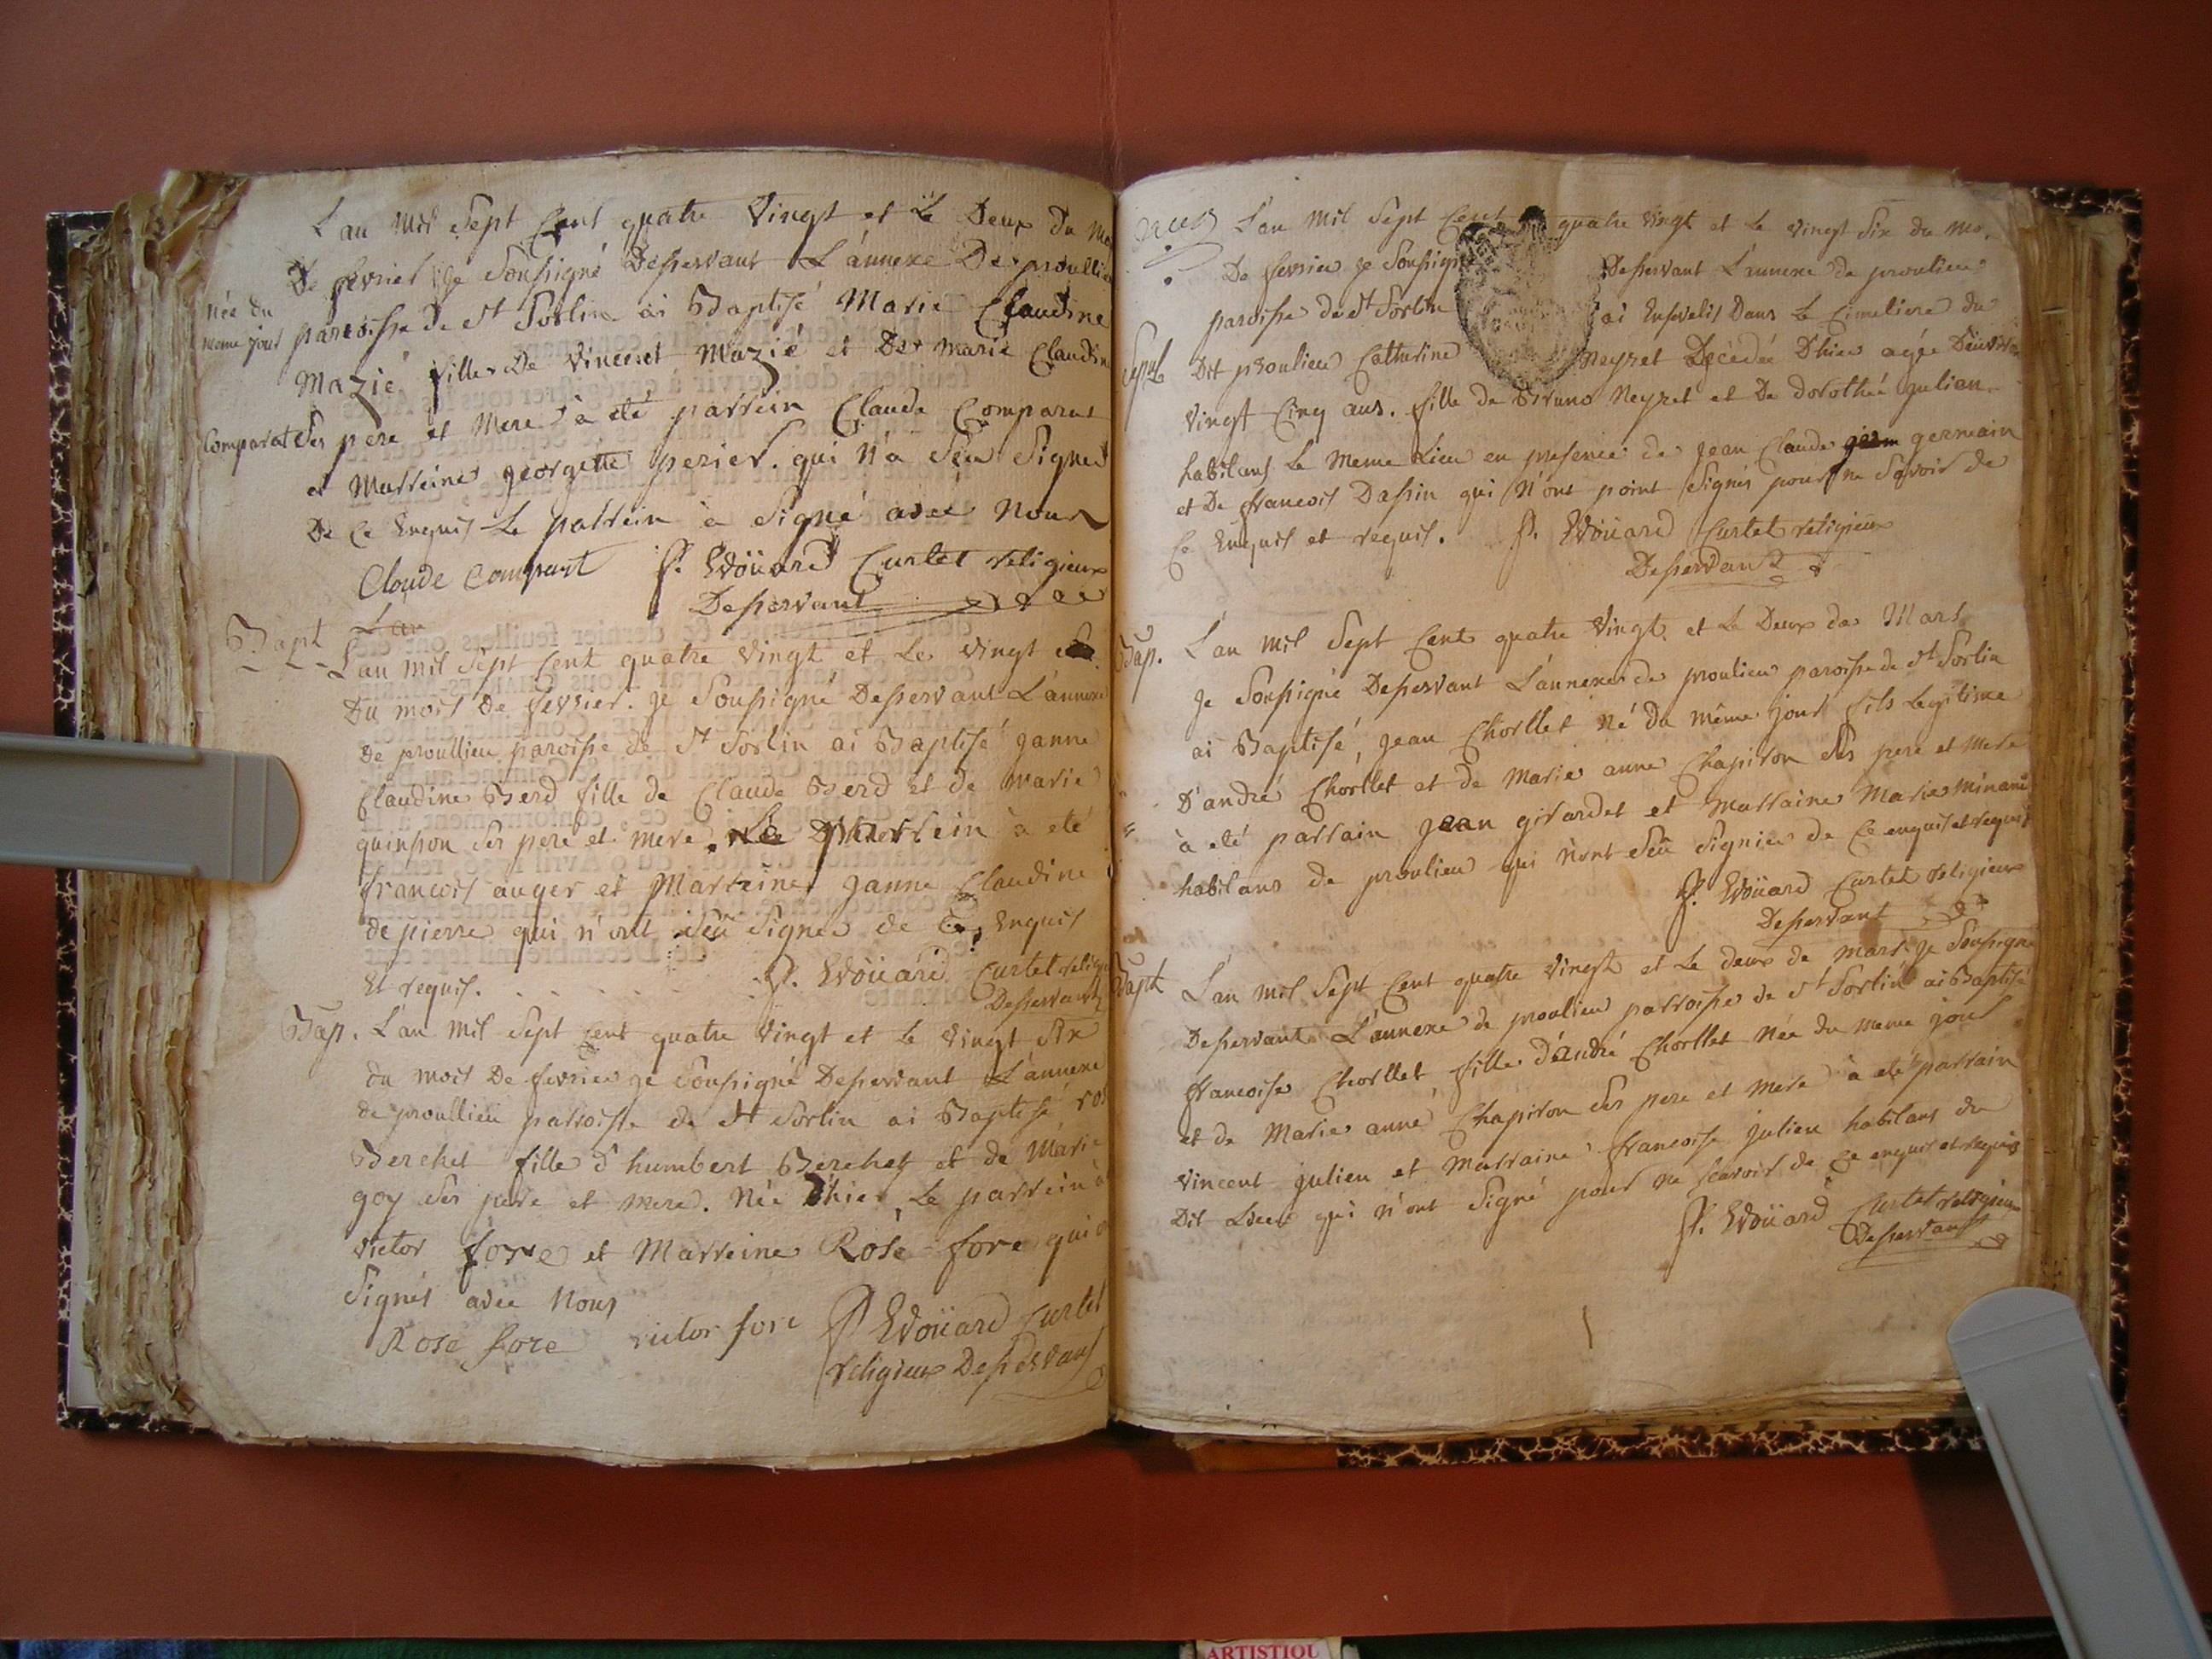 L'an mil Sept Cent quatre Vingt et Le Deux Du
De fevrier Je Soussigné Desservant L'annexe De
née du
meme jour
paroisse de St Sorlin ai Baptisé Marie Claudine
Mazié fille De Vincent Mazié et De Marie Claudine
Comparat Ses père et Mere a eté parrein Claude Comparat
et Marreine georgette perier. qui n'a Seu Signer
De Ce Enquis Le parrein à Signé avec Nous
Claude Comparat f. Edoüard Curtet religieux
Desservant
L'an
Bapt
L'an mil Sept Cent quatre Vingt et Le Vingt
Du mois De fevrier. je Soussigné Desservant L'annexe
De proullieu paroisse de St Sorlin ai Baptisé janne
Claudine Berd fille de Claude Berd et de Marie
quinson Ses pere et mere. Le parrein à eté
francois auger et Marreine janne Claudine
de pierre qui n'ont Seü Signer de Ce Enquis
Et requis. f. Edoüard Curtet
Desservant
Bap. L'an mil Sept Cent quatre Vingt et Le Vingt Six
du mois De fevrier je Soussigné Desservant L'annexe
de proullieu parroisse de St Sorlin ai Baptisé
Berchet fille d'humbert Berchet et de Marie
goy Ses pere et mere. Née d'hier, Le parrein à
Victor fore et Marreine Rose fore qui
Signés avec Nous
Rose fore victor fore f Edoüard Curtet
religieux Desservant
L'an mil Sept Cent quatre vingt et Le vingt Six du
De fevrier je Soussigné Desservant L'annexe de proulieu
paroisse de St Sorlin ai Ensevelis Dans Le Cimetiere du
Sepul
Dit proulieu Catherine Neyret Decedée D'hier agée
vingt Cinq ans. fille de Bruno Neyret et De dorothée julian
habitans Le Meme Lieu en presence de jean Claude germain
et De francois Dassin qui n'ont point Signés pour ne Savoir de
Ce Enquis et requis. f. Edoüard Curtet religieux
Desservant
Bap. L'an mil Sept Cent quatre Vingt et Le Deux de Mars
je Soussigné Desservant L'annexe de proulieu paroisse de St Sorlin
ai Baptisé, jean Chorllet né du même jour fils Legitime
D'andré Chorllet et de Marie anne Chapiron Ses pere et mere
à eté parrain jean girardet et Marraine Marie
habitans de proulieu qui n'ont Seü Signier de Ce enquis et requis
f. Edoüard Curtet religieux
Desservant
Bapt
L'an mil Sept Cent quatre Vingt et Le deux de mars. je Soussigné
Desservant L'annexe de proulieu parroisse de St Sorlin ai Baptisé
francoise Chorllet fille d'andré Chorllet née du meme jour
et de Marie anne Chapiron Ses pere et mere à eté parrain
Vincent julien et Marraine francoise julien habitans du
Dit Lieu qui n'ont Signé pour ne Scavoir de Ce enquis et requis
f. Edoüard Curtet religieux
Desservant
ARTISTIQU